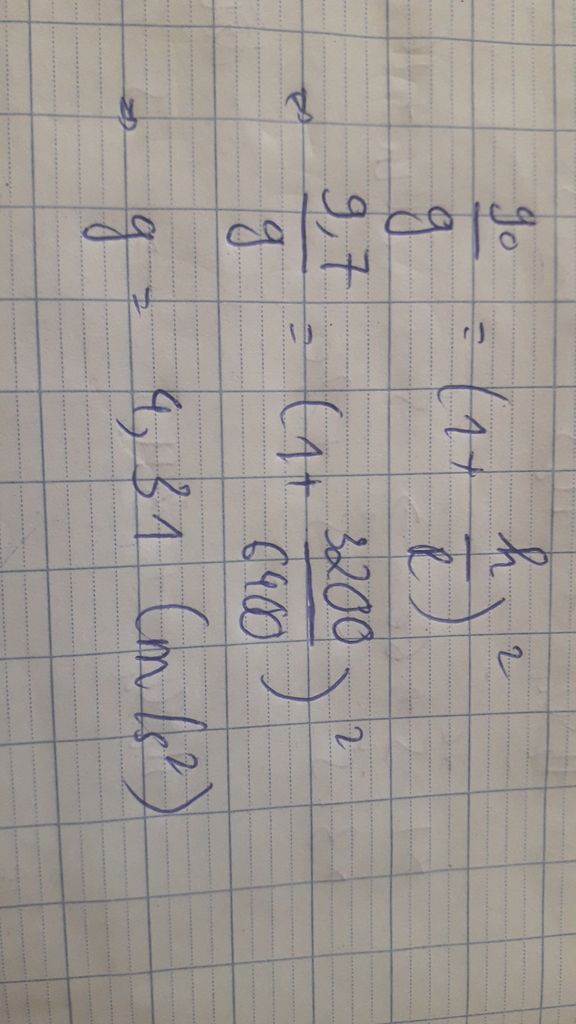 g₀/g = (1 + h/R)²
⇔ 9,7/g = (1 + 3200/6400)²
⇒ g = 4,31 (m/s²)